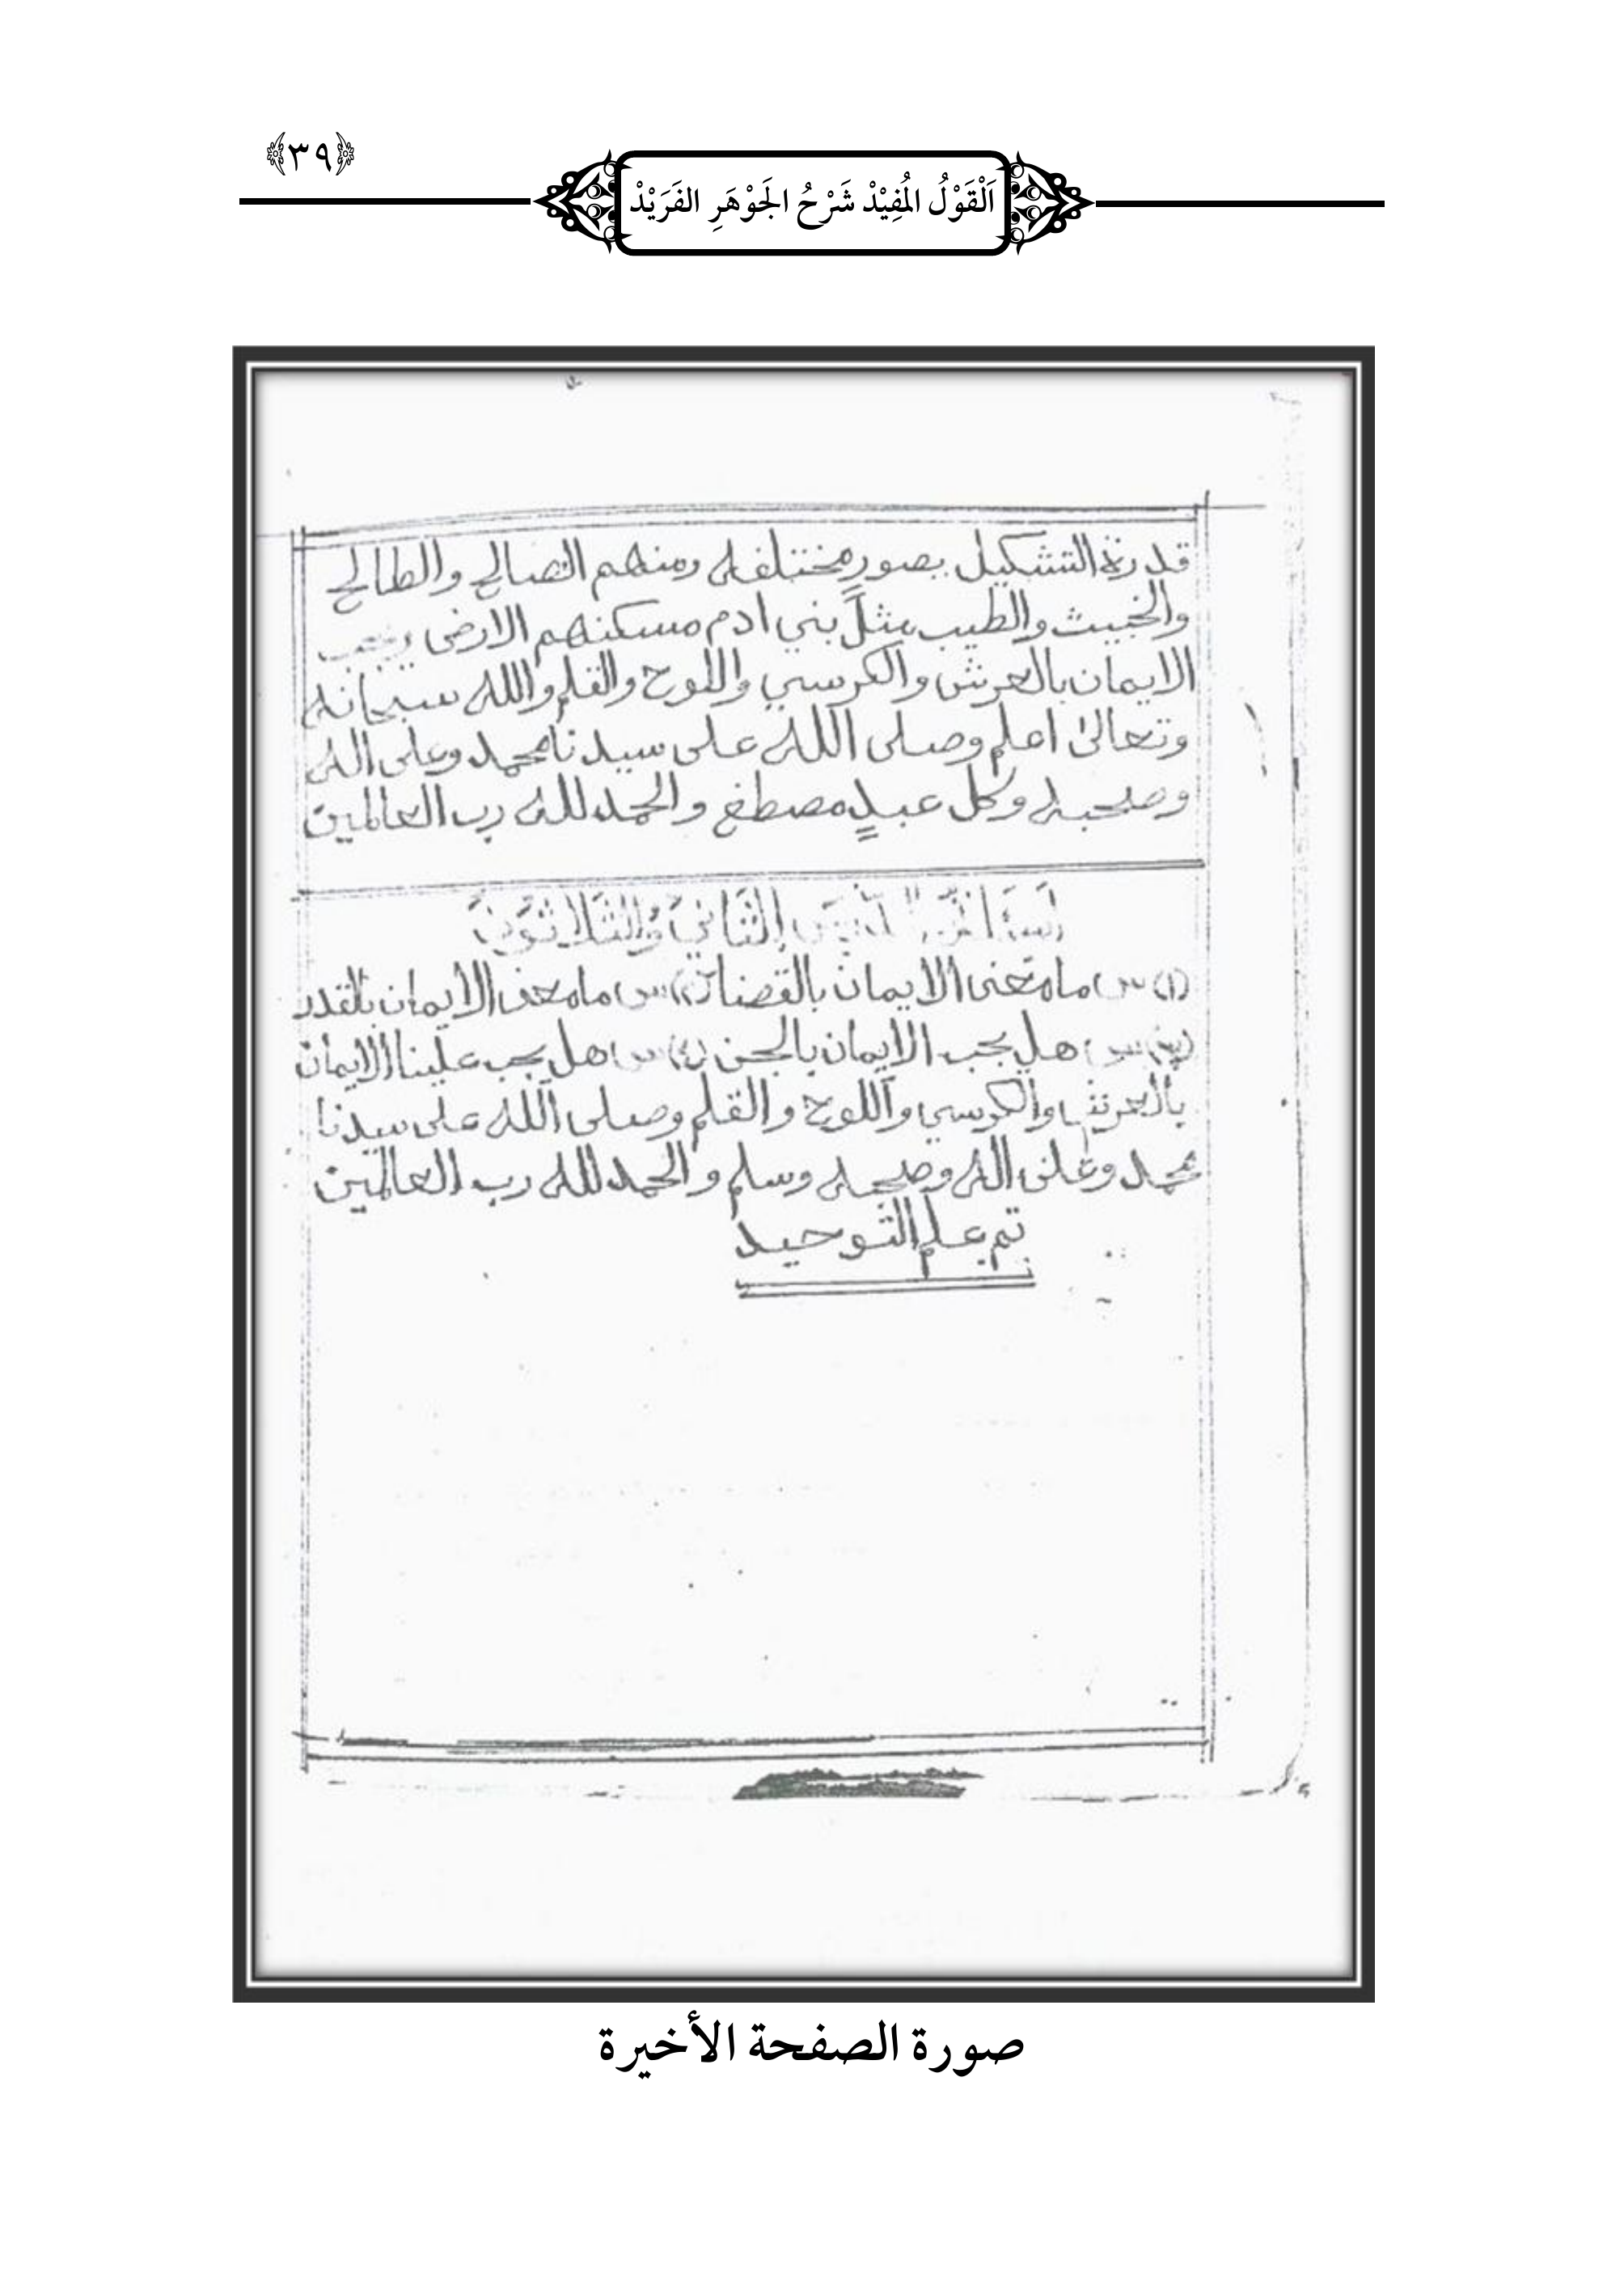 ﴿٣٩﴾
اَلْقَوْلُ المُفِيْدْ شَرْحُ الجَوْهَرِ الفَرَيْدْ
قدرة التشكيل بصورٍ مختلفه ومنهم الصالح والطالح
والخبيث والطيب مثلَ بني ادم مسكنهم الارض ويجب
الايمان بالعرش والكرسي واللوح والقلم والله سبحانه
وتعالى اعلم وصلى الله على سيدنا محمد وعلى اله
وصحبه وكل عبدٍ مصطفى والحمد لله رب العالمين
الثَّاني وَالثَّلاثوَنَ
(١) س ما معنى الايمان بالقضا (٢) س ما معنى الايمان بالقدر
(٣) س هل يجب الايمان بالجن (٤) س هل يجب علينا الايمان
بالعرش والكرسي واللوح والقلم وصلى الله على سيدنا
محمد وعلى اله وصحبه وسلم والحمد لله رب العالمين
تم علم التوحيد
صورة الصفحة الأخيرة